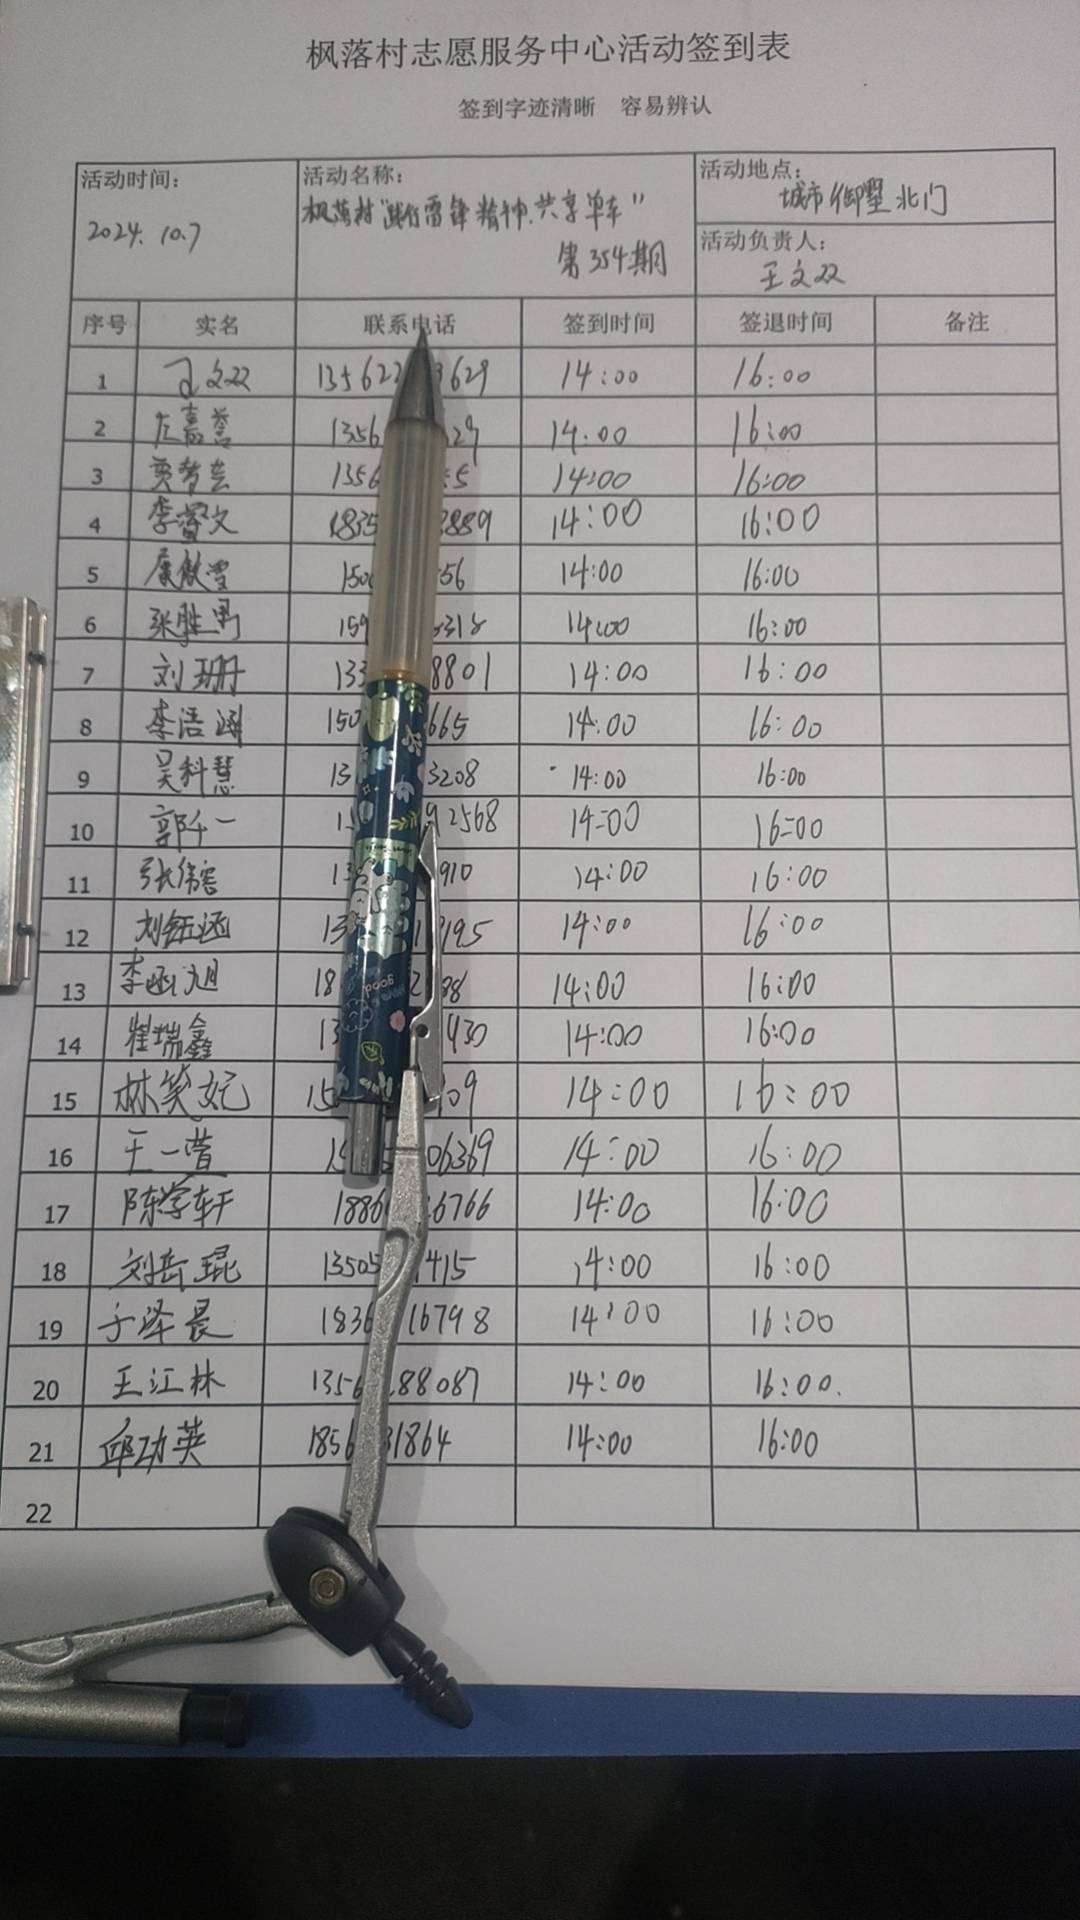 枫落村志愿服务中心活动签到表
签到字迹清晰 容易辨认
活动时间:
2024. 10.7
活动名称:
枫落村“践行雷锋精神.共享单车”
第354期
活动地点:
城市御墅北门
活动负责人:
王文双
序号 实名 联系电话 签到时间 签退时间 备注
1 文双 135622 3629 14:00 16:00
2 嘉誉 1356 29 14:00 16:00
3 1356 55 14:00 16:00
4 李 文 1835 3889 14:00 16:00
5 康 雪 150 56 14:00 16:00
6 张胜男 159 3318 14:00 16:00
7 刘珊 133 8801 14:00 16:00
8 李浯涵 150 665 14:00 16:00
9 吴科慧 13 3208 14:00 16:00
10 郭仟一 1 92568 14:00 16:00
11 张伟 13 910 14:00 16:00
12 刘钰涵 13 1195 14:00 16:00
13 李函旭 18 2 88 14:00 16:00
14 崔瑞鑫 13 430 14:00 16:00
15 林笑妃 150 109 14:00 16:00
16 王一萱 15 06369 14:00 16:00
17 陈学轩 1886 6766 14:00 16:00
18 刘岳琨 13505 1415 14:00 16:00
19 于泽晨 1836 16798 14:00 16:00
20 王江林 1356 88087 14:00 16:00.
21 邱功英 1856 31864 14:00 16:00
22
good